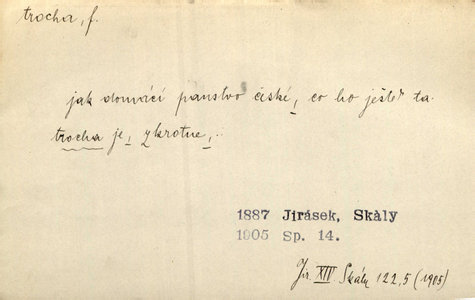 trocha, f.
jak domácí panstvo české, co ho ještě ta
trocha je, zkrotne,.
1887 Jirásek, Skàly
1905 Sp. 14.
Jir. XIV Skály 122,5 (1905)